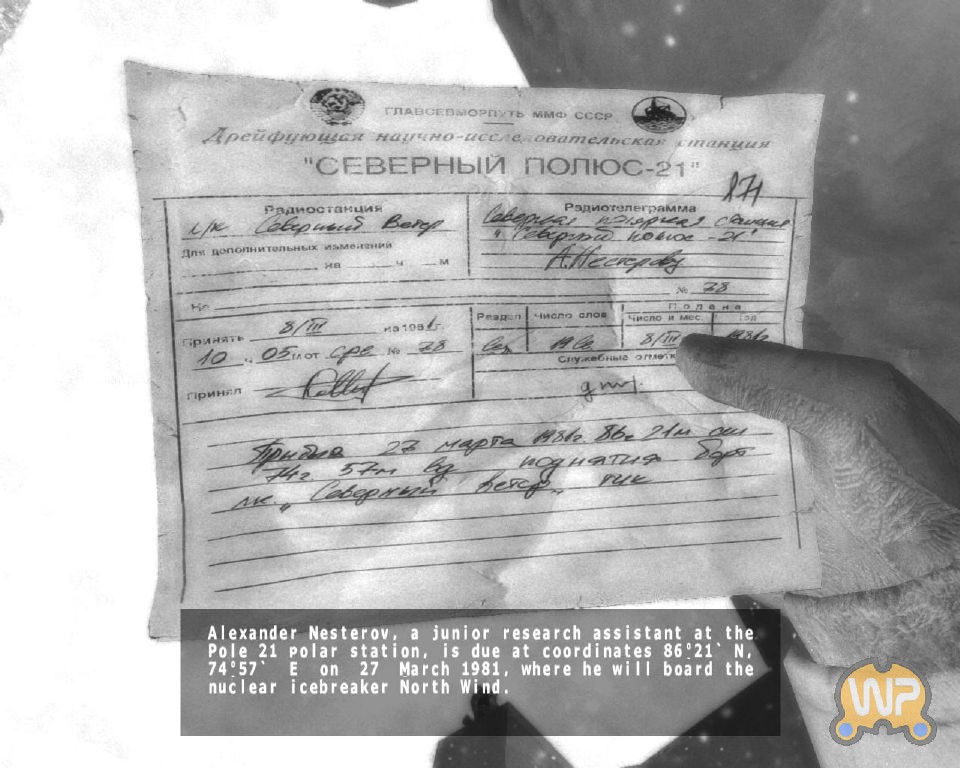 ГЛАВСЕВМОРПУТЬ ММФ СССР
Дрейфующая научно-исследовательская станция
"СЕВЕРНЫЙ ПОЛЮС-21"
871
Радиостанция
л/к Северный Ветер
Для дополнительных изменений
на ч м
Но
Радиотелеграмма
Северная полярная станция
"Северный полюс-21"
А.Нестерову
№ 78
Принять 8/III на 1981г.
10 ч. 05 м от срв № 78
Принял
Раздел Число слов Число и мес. Год
Подана
19 8/III 1981г
Служебные отметки
27 марта 1981г. 86г 21м сш
74г 57м вд поднятия борт
лк. "Северный ветер" тчк
Alexander Nesterov, a junior research assistant at the
Pole 21 polar station, is due at coordinates 86°21` N,
74°57` E on 27 March 1981, where he will board the
nuclear icebreaker North Wind.
WP